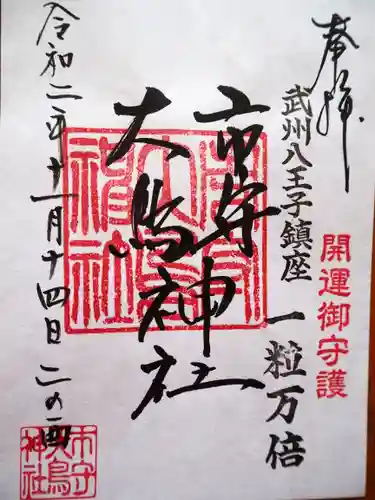 奉拝
開運御守護
武州八王子鎮座 一粒万倍
市守神社
大鳥神社
令和二年十一月十四日 二の酉
市守
大鳥
神社